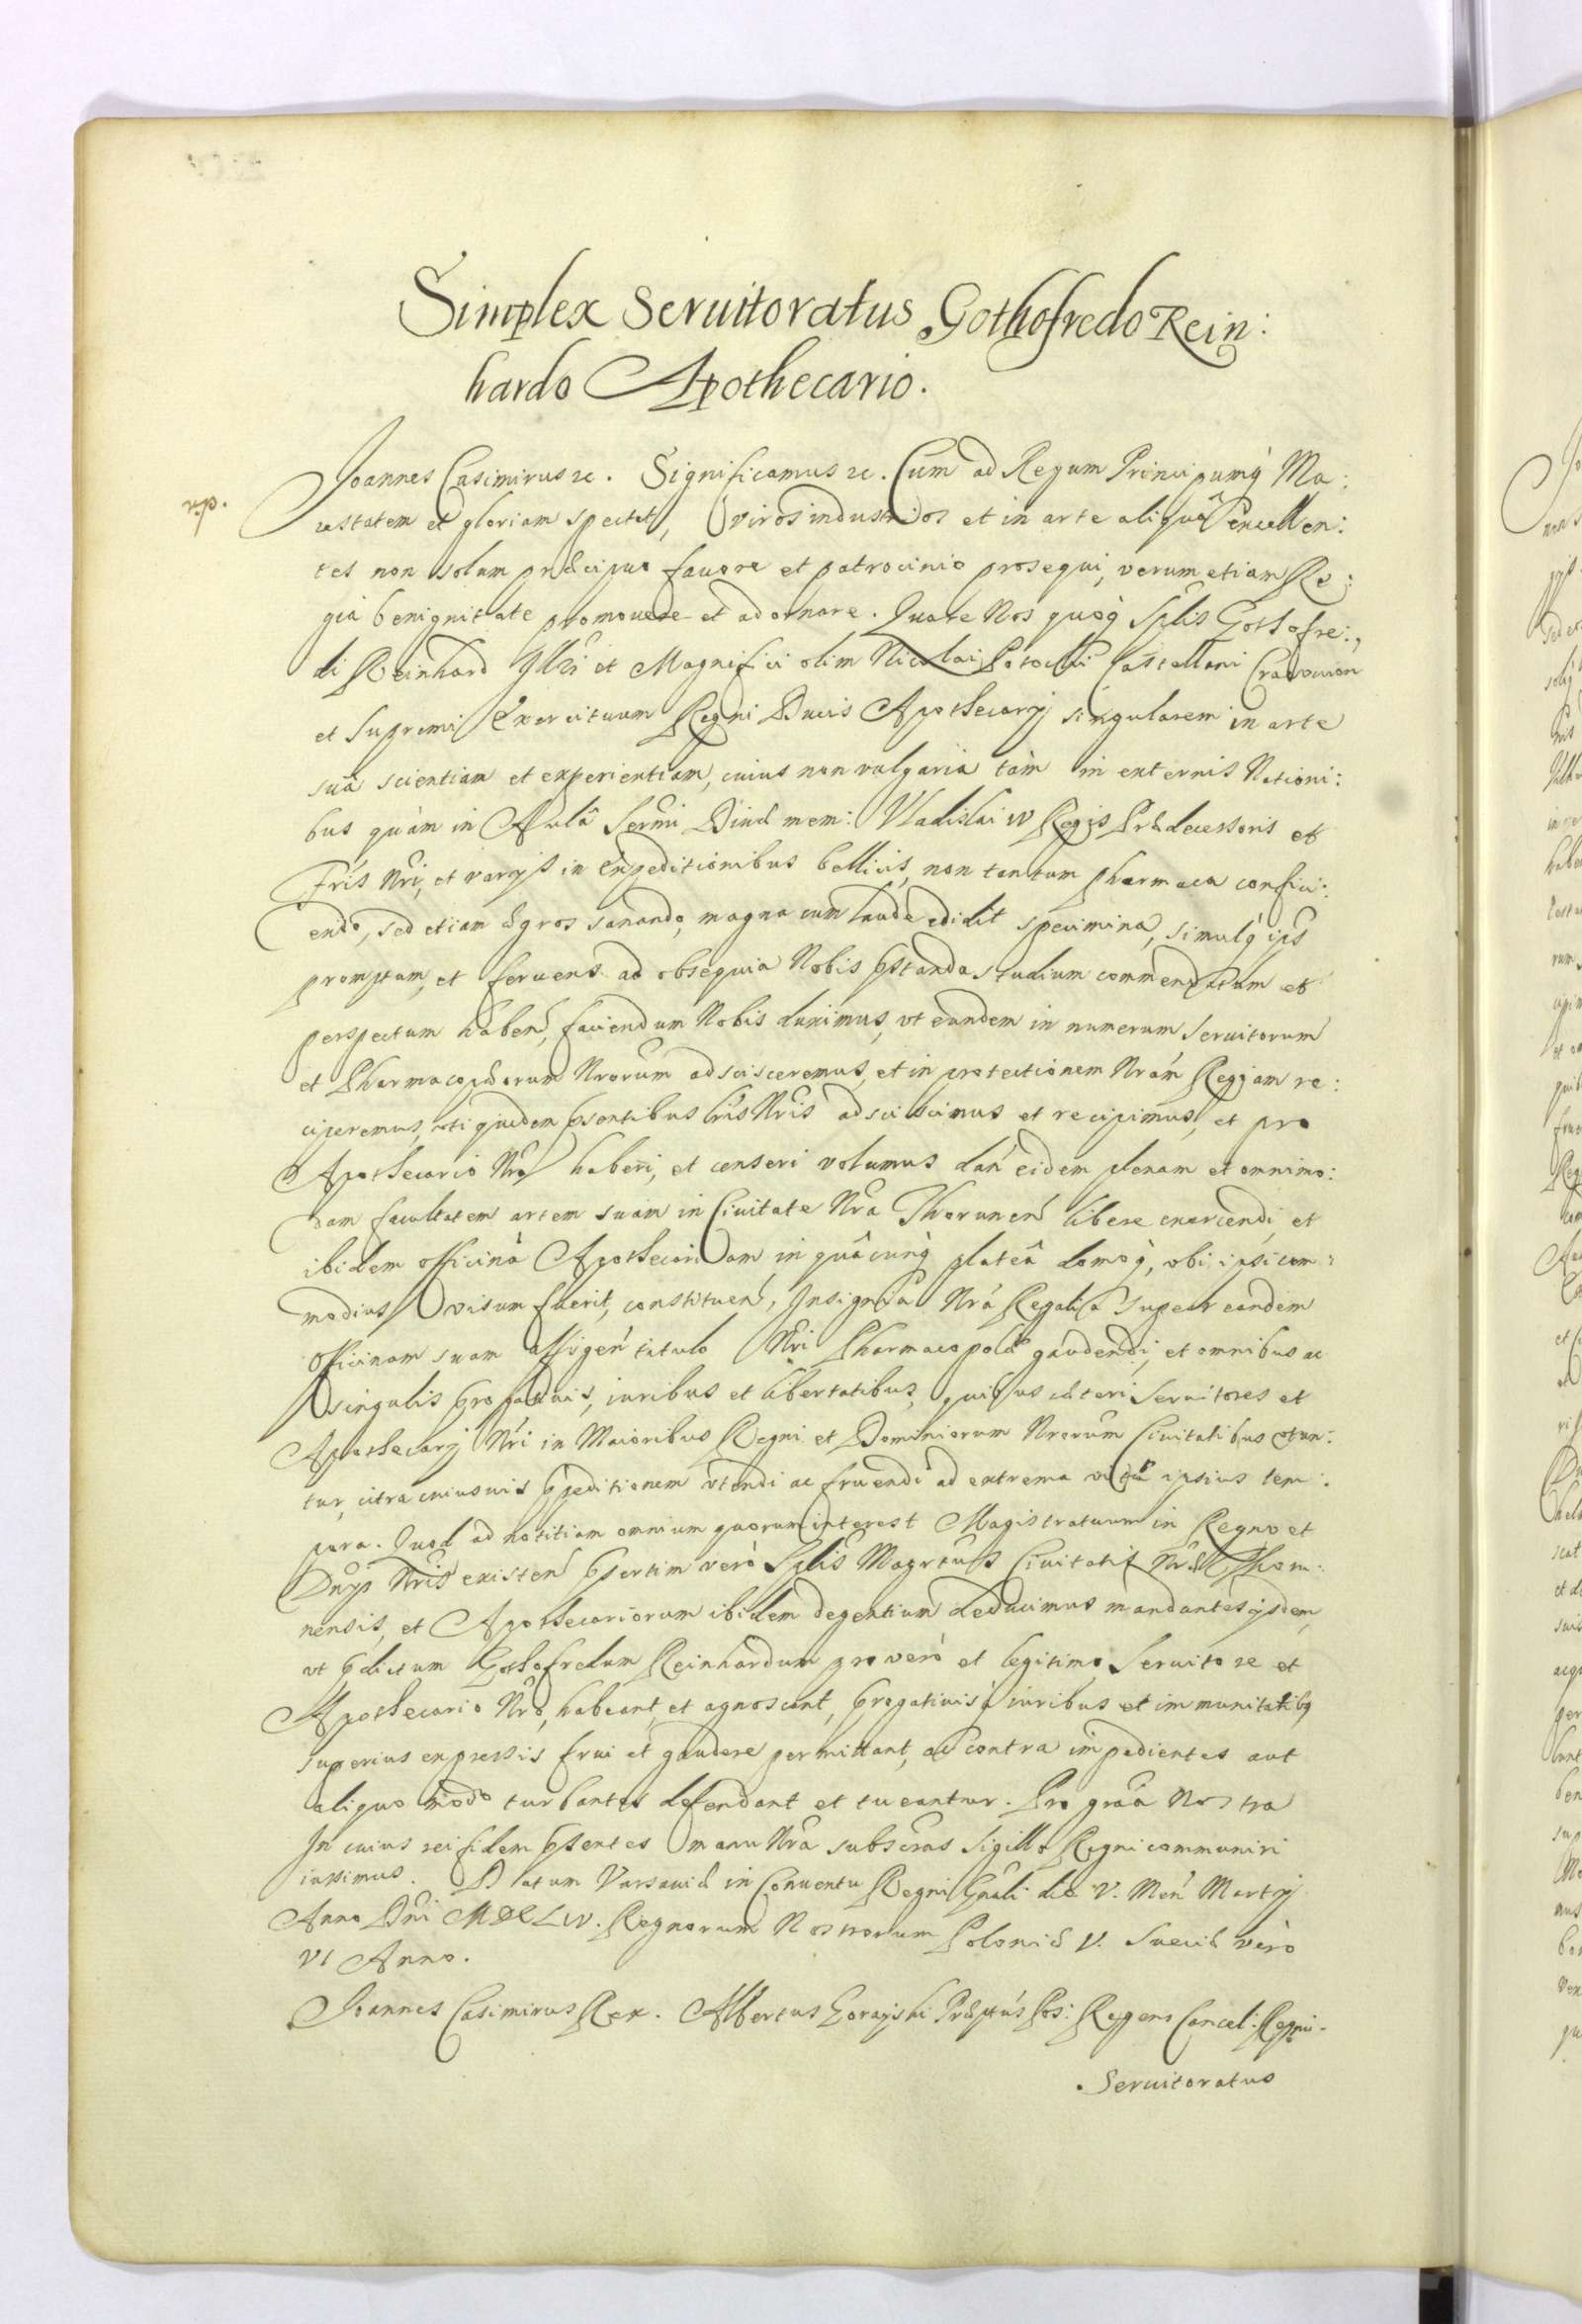 Simplex Seruitoratus Gothofredo Rein:
hardo Apothecario.
Joannes Casimirus etc. Significamus etc. Cum ad Regum Principumq̀ Ma:
iestatem et gloriam spectet, viros industrios et in arte aliquâ excellen:
tes non solum præcipuo fauore et patrocinio prosequi, verum etiam Re:
giâ benignitate promouere et adornare. Quare Nos quoq̀ Splis Gothofre:
di Reinhard Illris et Magnifici olim Nicolai Potocki Castellani Cracouien
et Supremi Exercituum Regni Ducis Apothecarij singularem in arte
suâ scientiam et experientiam, cuius non vulgaria tàm in externis Nationi:
bus quàm in Aulâ Sermi Diuæ mem: Vladislai IV Regis Prædecessoris et
Fris Nri, et varijs in Expeditionibus bellicis, non tantum pharmaca confici:
endo, sed etiam ægros sanando, magna cum laude edidit specimina, simulq̀ ips
promptum, et feruens ad obsequia Nobis pstanda studium commendatum et
perspectum haben, faciendum Nobis duximus, vt eundem in numerum Seruitorum
et Pharmacopæorum Nrorum adscisceremus, et in protectionem Nram Regiam re:
ciperemus, uti quidem psentibus lris Nris adsciscimus et recipimus, et pro
Apothecario Nro haberi, et censeri volumus dan eidem plenam et omnimo:
dam facultatem artem suam in Ciuitate Nra Thorunen libere exercendi, et
ibidem officinà Apothecariam in quâcunq̀ plateâ domoq̀, vbi ipsi com:
modius visum fuerit, constituen, Insignia Nra Regalia super eandem
officinam suam affigen titulo Nri Pharmacopolæ gaudendi, et omnibus ac
singulis prærogatiuis, iuribus et libertatibus, quibus cæteri Seruitores et
Apothecarij Nri in Maioribus Regni et Dominiorum Nrorum Ciuitatibus vtun:
tur, citra cuiusuis ppeditionem vtendi ac fruendi ad extrema vitæ ipsius tem:
pora. Quod ad notitiam omnium quorum interest Magistratuum in Regno et
Dnijs Nris existen psertim verò Splis Magrtus Ciuitatis Nræ Thoru:
nensis, et Apothecariorum ibidem degentium deducimus mandantes ijsdem,
vt pdictum Gothofredum Reinhardum pro vero et legitimo Seruitore et
Apothecario Nro, habeant, et agnoscant, progatiuisq̀ iuribus et immunitatibq
superius expressis frui et gaudere permittant, ac contra impedientes aut
aliquo modo turbantes defendant et tueantur. Pro grãa Nostra
In cuius rei fidem psentes manu Nra subscras Sigillo Regni communiri
iussimus. Datum Varsauiæ in Conuentu Regni Gnali die V. Men Martij
Anno Dni MDCLIV. Regnorum Nostrorum Poloniæ V. Sueciæ verò
VI Anno.
Joannes Casimirus Rex. Albertus Gorayski Præptus Pos: Regens Cancel: Regni.
Seruitoratus